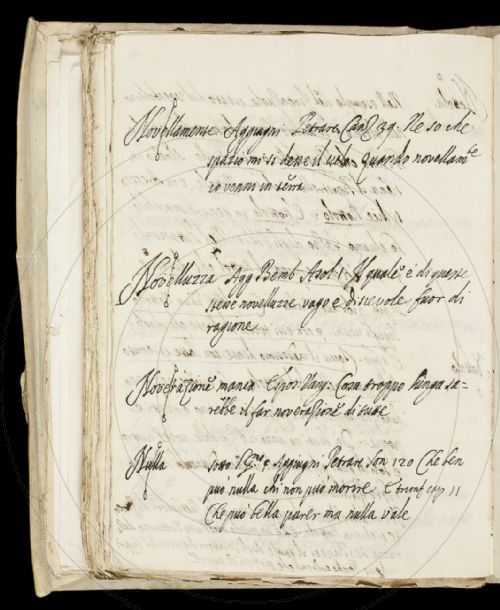 Novellamente Aggiugni Petrarc. Canz. 39. Ne so che
spatio mi si desse il cielo Quando novellam.te
io venni in terra
Novelluzza Agg. Bemb. Asol. 1. Il quale è di queste
tene novelluzze vago e discevole fuor di
ragione
Noverazione manca Espos. Vang: Cosa troppo lunga sa=
rebbe il far noverazione di tutte
Nulla sotto l'§.ne Aggiugni Petrarc. Son. 120 Che ben
può nulla chi non può morire E trionf. cap. 11
Che può bella parer ma nulla vale